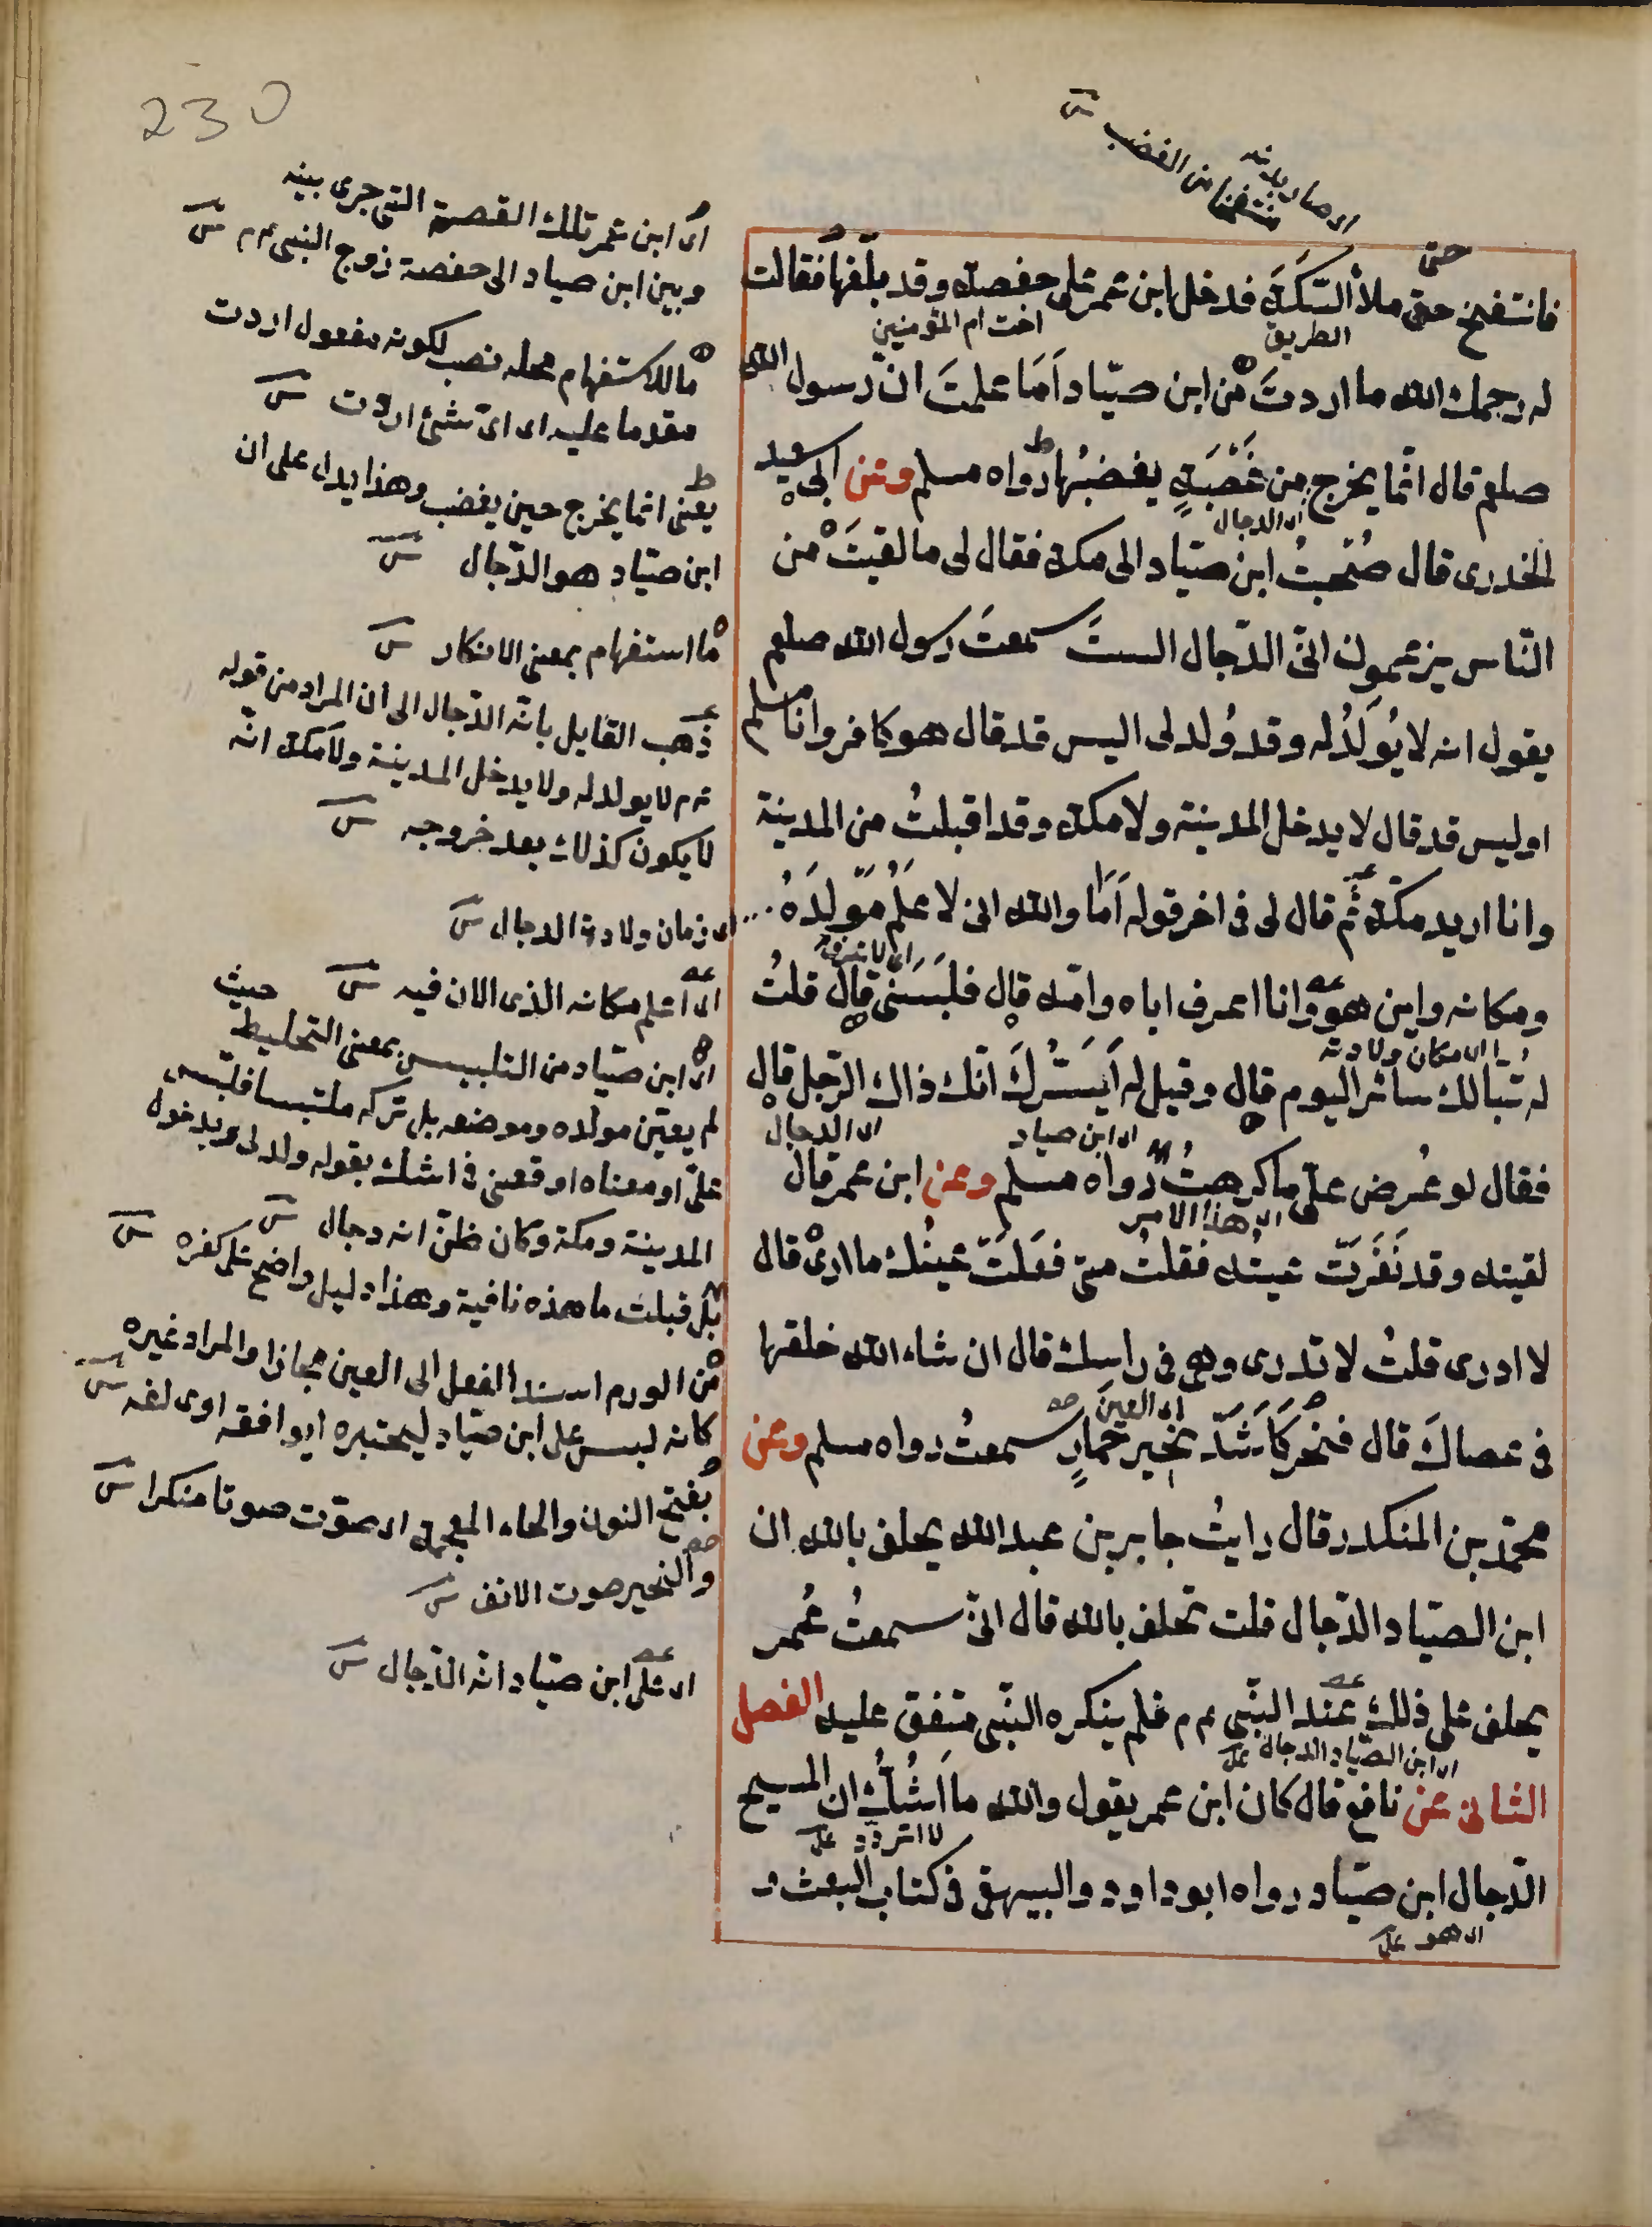 230
ای صار بدنه
منتفخا من الغضب
حتى
فانتفخ حتى ملأ السّكّة فدخل ابن عمر على حفصة وقد بلّغها فقالت
الطريق
اخت ام المؤمنين
له رحمك الله ما اردتَ من ابن صيّاد اَمَا علمتَ انّ رسول الله
صلعم قال انّما يخرج من غَضْبَةٍ يغضبُها رواه مسلم وعن ابى سعيد
ای الدجال
الخدرى قال صَحِبتُ ابن صيّاد الى مكة فقال لى ما لقيتُ من
النّاس يزعمون انّى الدّجال الستَ سمعتَ رسول الله صلعم
يقول انه لا يُولَدُ له وقد وُلد لى اليس قد قال هو كافر وانا مسلم
اوليس قد قال لا يدخل المدينة ولا مكة وقد اقبلتُ من المدينة
وانا اريد مكّة ثُم قال لى فى اخر قوله اَمَا والله انى لاعلَمُ مَوْلِدَهُ
ومكانه واين هو وانا اعرف اباه وامّه قال فلبَسَنى قال قلتُ
ای مكان ولادته
له تبّا لك سائر اليوم قال وقيل له اَيَسُرُّكَ انّك ذاك الرّجل قال
ای ابن صياد
ای الدجال
فقال لو عُرض علىّ ما كرهتُ رواه مسلم وعن ابن عمر قال
ای هذا الامر
لقيته وقد نَفَرَتْ عينه فقلتُ متى فعَلَتْ عينُك ما ارى قال
لا ادرى قلتُ لا تدرى وهى فى راسك قال ان شاء الله خلقها
ای العين
فى عصاك قال فنخر كاَشَدّ نخير حمارٍ سمعتُ رواه مسلم وعن
محمّد بن المنكدر قال رايتُ جابر بن عبد الله يحلف بالله ان
ابن الصيّاد الدّجال قلت تحلف بالله قال انّى سمعتُ عُمر
يحلف على ذلك عند النّبى ءم فلم ينكره النّبى متفق عليه الفصل
ای ابن الصيّاد الدجال
الثانى عن نافع قال كان ابن عمر يقول والله ما اَشُكُّ ان المسيح
لا اتردد
الدّجال ابن صيّاد رواه ابو داود والبيهقى فى كتاب البعث و
ای هو
ای ابن عمر تلك القصة التى جرى بينه
وبين ابن صياد الى حفصة زوج النبى ءم
ما للاستفهام محله نصب لكونه مفعول اردت
مقدما عليه ای اىّ شئ اردت
يعنى انما يخرج حين يغضب وهذا يدل على ان
ابن صيّاد هو الدّجال
ما استفهام بمعنى الانكار
ذهب القايل بانّه الدّجال الى ان المراد من قوله
ءم لا يولد له ولا يدخل المدينة ولا مكة انّه
لا يكون كذلك بعد خروجه
ای زمان ولادة الدجال
ای اعلم مكانه الذى الان فيه
ای ابن صيّاد من التلبيس بمعنى التخليط حيث
لم يعيّن مولده وموضعه بل تركه ملتبسا فلبّس
علىّ او معناه اوقعنى فى الشك بقوله ولد لى وبدخول
المدينة ومكة وكان ظنّى انه دجال
بل قبلت ما هذه نافية وهذا دليل واضح على كفره
من الورم اسند الفعل الى العين مجازا والمراد غيره
كانه لبس على ابن صيّاد ليختبره ايوافقه او يخالفه
بفتح النون والخاء المعجمة ای صوّت صوتا منكرا
والنخير صوت الانف
ای على ابن صيّاد انّه الدّجال